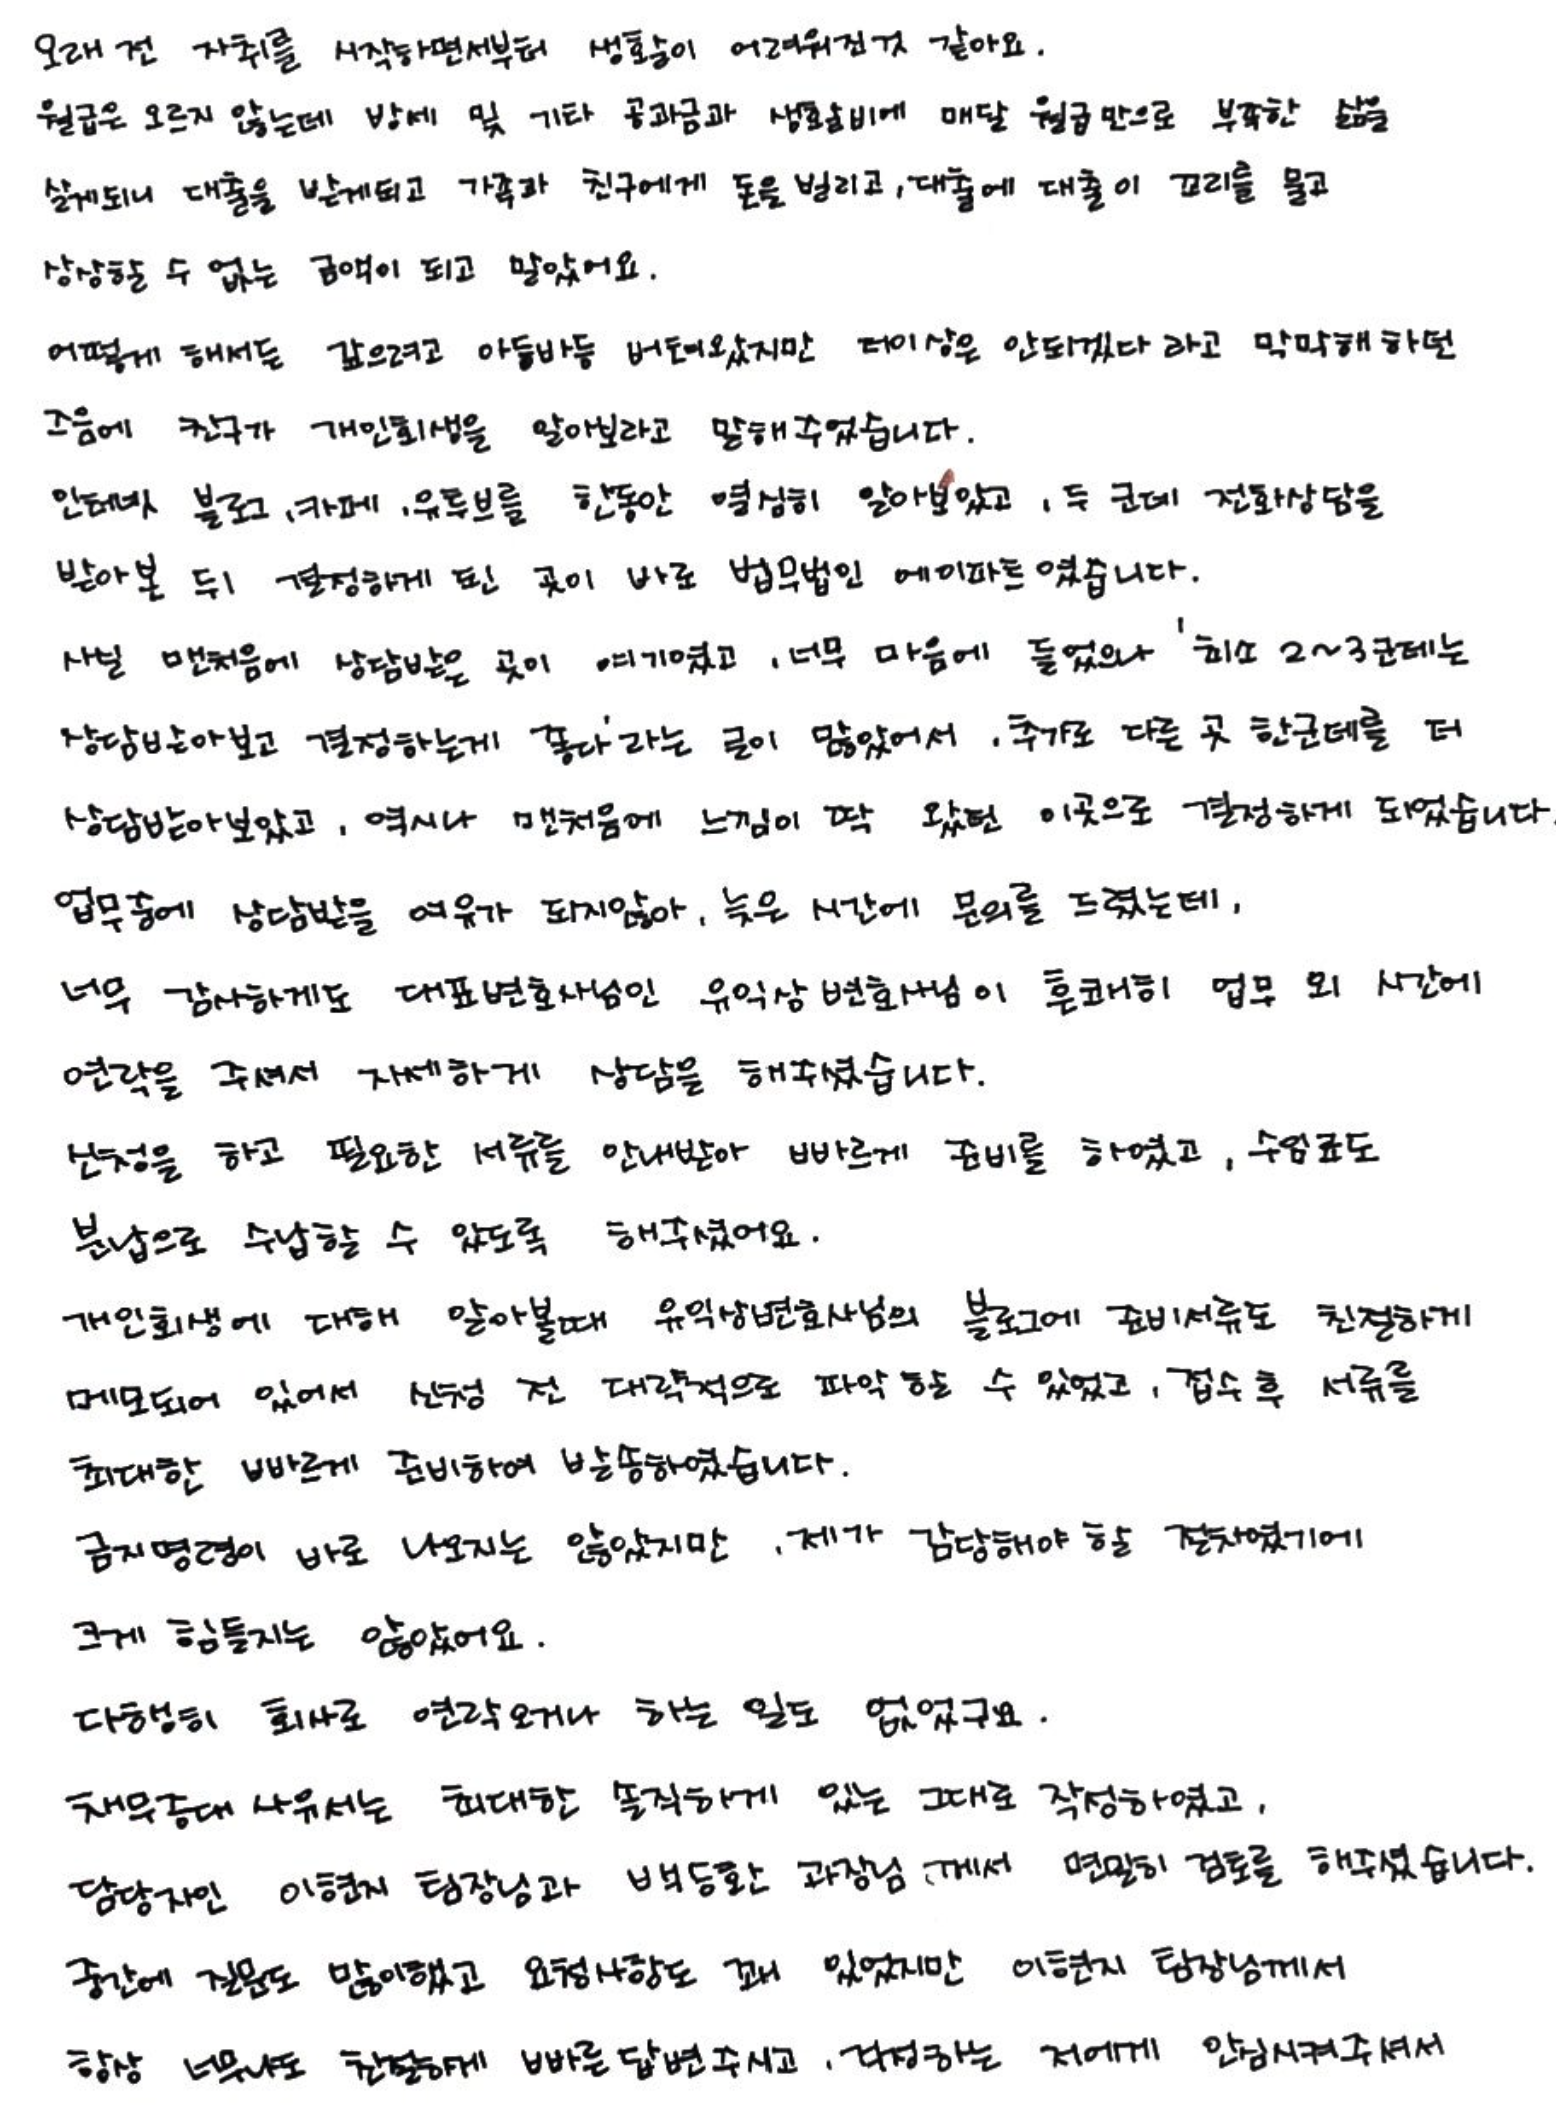 오래 전 자취를 시작하면서부터 생활이 어려워진것 같아요.
월급은 오르지 않는데 방세 및 기타 공과금과 생활비에 매달 월급만으로 부족한 삶을
살게되니 대출을 받게되고 가족과 친구에게 돈을 빌리고, 대출에 대출이 꼬리를 물고
상상할 수 없는 금액이 되고 말았어요.
어떻게 해서든 갚으려고 아둥바둥 버텨왔지만 더이상은 안되겠다 라고 막막해 하던
즈음에 친구가 개인회생을 알아보라고 말해주었습니다.
인터넷 블로그, 카페, 유투브를 한동안 열심히 알아보았고, 두 군데 전화상담을
받아본 뒤 결정하게 된 곳이 바로 법무법인 에이파트였습니다.
사실 맨처음에 상담받은 곳이 여기였고, 너무 마음에 들었으나 '최소 2~3군데는
상담받아보고 결정하는게 좋다'라는 글이 많았어서, 추가로 다른 곳 한군데를 더
상담받아보았고, 역시나 맨처음에 느낌이 딱 왔던 이곳으로 결정하게 되었습니다.
업무중에 상담받을 여유가 되지않아, 늦은 시간에 문의를 드렸는데,
너무 감사하게도 대표변호사님인 유익상 변호사님이 흔쾌히 업무 외 시간에
연락을 주셔서 자세하게 상담을 해주셨습니다.
신청을 하고 필요한 서류를 안내받아 빠르게 준비를 하였고, 수임료도
분납으로 수납할 수 있도록 해주셨어요.
개인회생에 대해 알아볼때 유익상변호사님의 블로그에 준비서류도 친절하게
메모되어 있어서 신청 전 대략적으로 파악 할 수 있었고, 접수 후 서류를
최대한 빠르게 준비하여 발송하였습니다.
금지명령이 바로 나오지는 않았지만, 제가 감당해야 할 절차였기에
크게 힘들지는 않았어요.
다행히 회사로 연락오거나 하는 일도 없었구요.
채무증대 사유서는 최대한 솔직하게 있는 그대로 작성하였고,
담당자인 이현지 팀장님과 백동환 과장님께서 면밀히 검토를 해주셨습니다.
중간에 질문도 많이했고 요청사항도 꽤 있었지만 이현지 팀장님께서
항상 너무나도 친절하게 빠른 답변주시고, 걱정하는 저에게 안심시켜주셔서